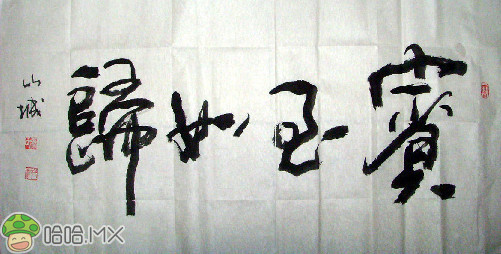 賓至如歸
山城
哈哈.MX